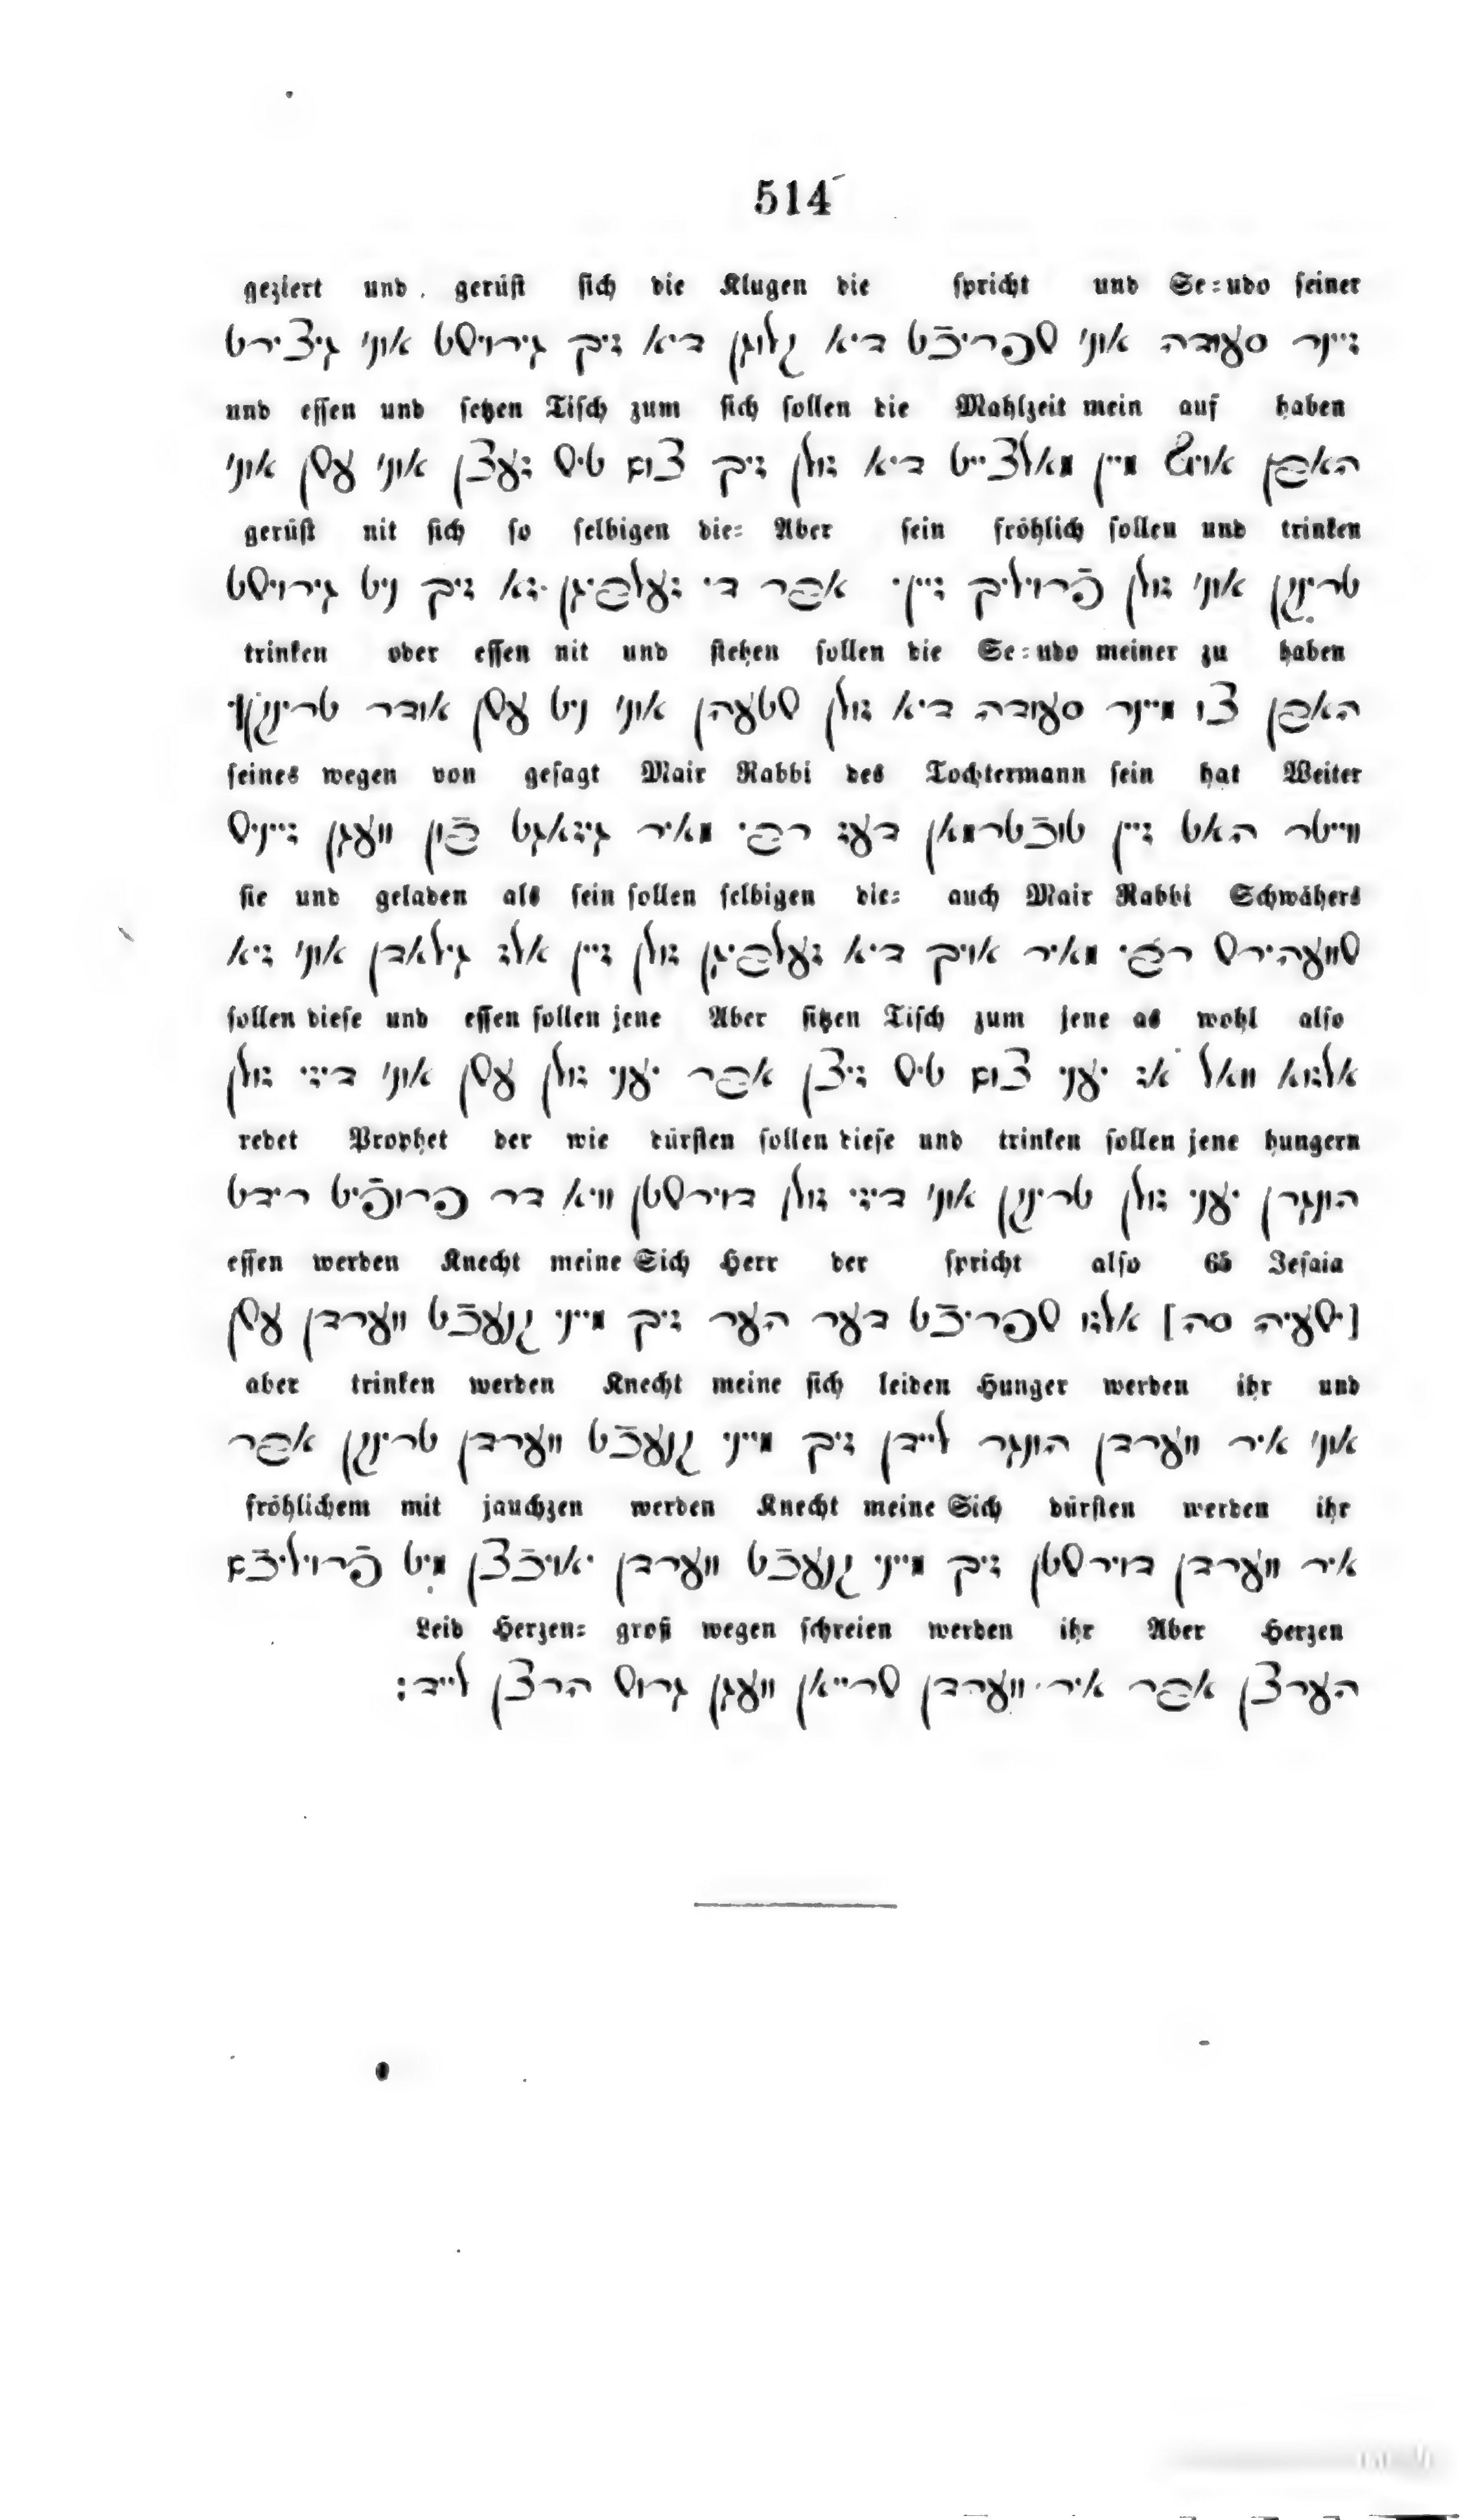 514
geziert und gerüst sich die Klugen die spricht und Se=udo seiner
זיינר סעודה אוני שפריכֿט דיא קלוגן דיא זיך גירוישט אוני גיצירט
und essen und setzen Tisch zum sich sollen die Mahlzeit mein auf haben
האבן אויף מיין מאלצייט דיא זולן זיך צום טיש זעצן אוני עסן אוני
gerüst nit sich so selbigen die= Aber sein fröhlich sollen und trinken
טרינקן אוני זולן פֿרוליך זיין אבר די זעלביגן זא זיך ניט גירוישט
trinken oder essen nit und stehen sollen die Se=udo meiner zu haben
האבן צו מיינר סעודה דיא זולן שטעהן אוני ניט עסן אודר טרינקן
seines wegen von gesagt Mair Rabbi des Tochtermann sein hat Weiter
ווייטר האט זיין טוכֿטרמאן דעז רבי מאיר גיזאגט פֿון וועגן זייניש
sie und geladen als sein sollen selbigen die= auch Mair Rabbi Schwähers
שוועהירש רבי מאיר אויך דיא זעלביגן זולן זיין אלז גילאדן אוני זיא
sollen diese und essen sollen jene Aber sitzen Tisch zum jene as wohl also
אלזוא וואל אז יעני צום טיש זיצן אבר יעני זולן עסן אוני דיזי זולן
redet Prophet der wie dürsten sollen diese und trinken sollen jene hungern
הונגרן יעני זולן טרינקן אוני דיזי זולן דוירשטן וויא דר פרופֿיט רידט
essen werden Knecht meine Sich Herr der spricht also 65 Jesaia
[ישעיה סה] אלזו שפריכֿט דער הער זיך מייני קנעכֿט ווערדן עסן
aber trinken werden Knecht meine sich leiden Hunger werden ihr und
אוני איר ווערדן הונגר ליידן זיך מייני קנעכֿט ווערדן טרינקן אבר
fröhlichem mit jauchzen werden Knecht meine Sich dürsten werden ihr
איר ווערדן דוירשטן זיך מייני קנעכֿט ווערדן יאויכֿצן מיט פֿרויליכֿם
Leid Herzen= groß wegen schreien werden ihr Aber Herzen
הערצן אבר איר ווערדן שרייאן וועגן גרוש הרצן לייד: